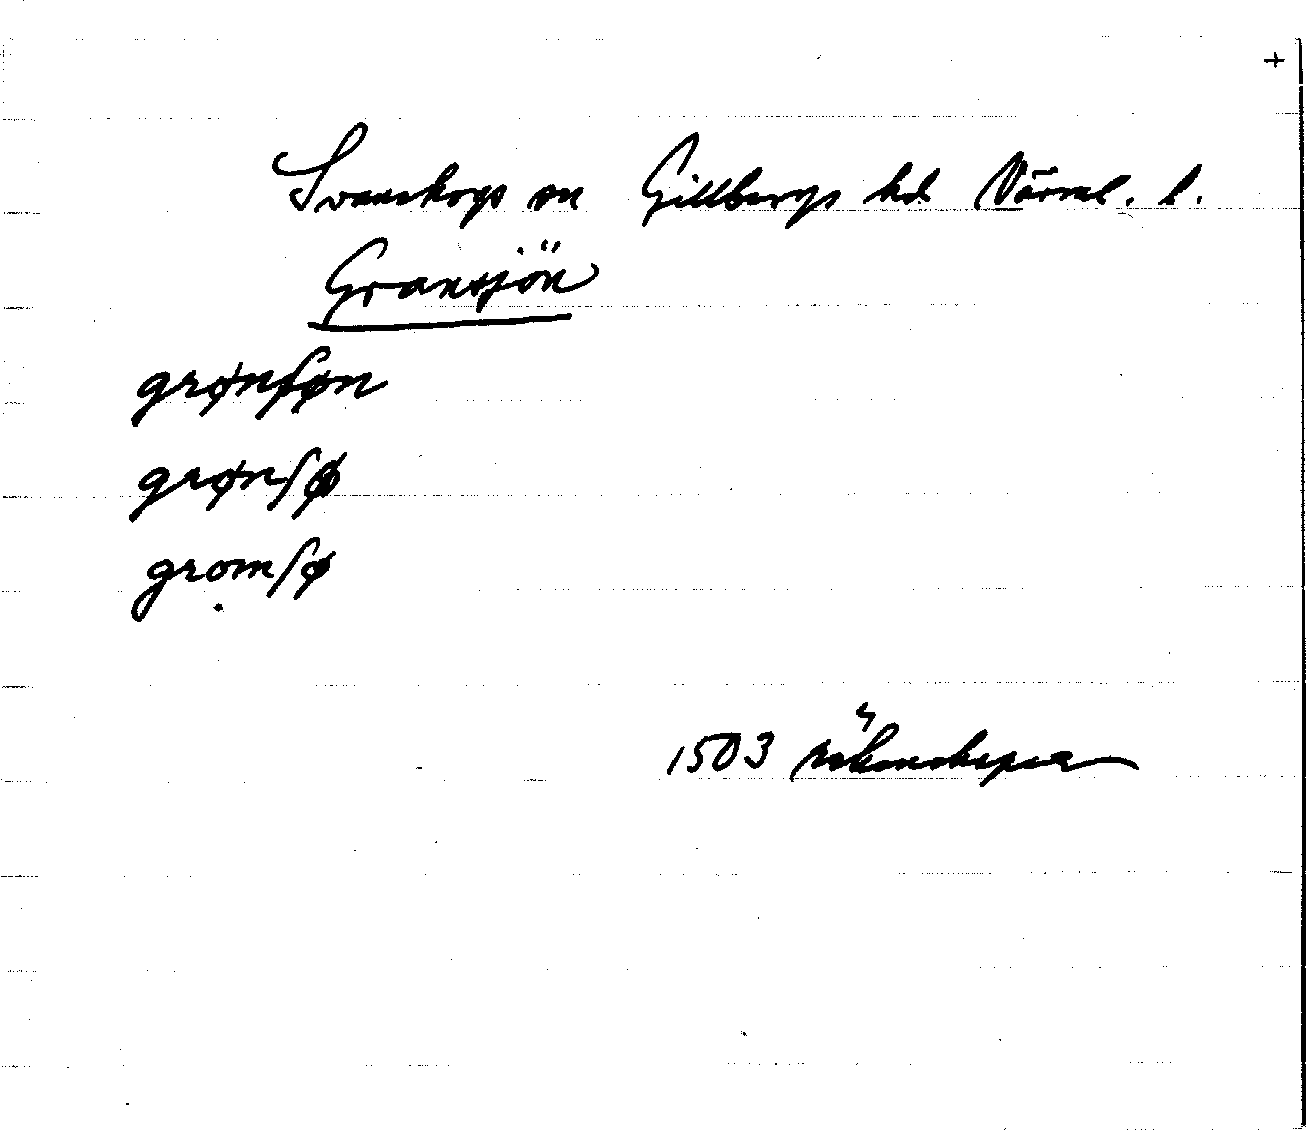 +
Svanskogs sn Gillbergs hd Värml. l.
Gransjön
grønſøn
grønſø
gromſø
1503 räkenskaper